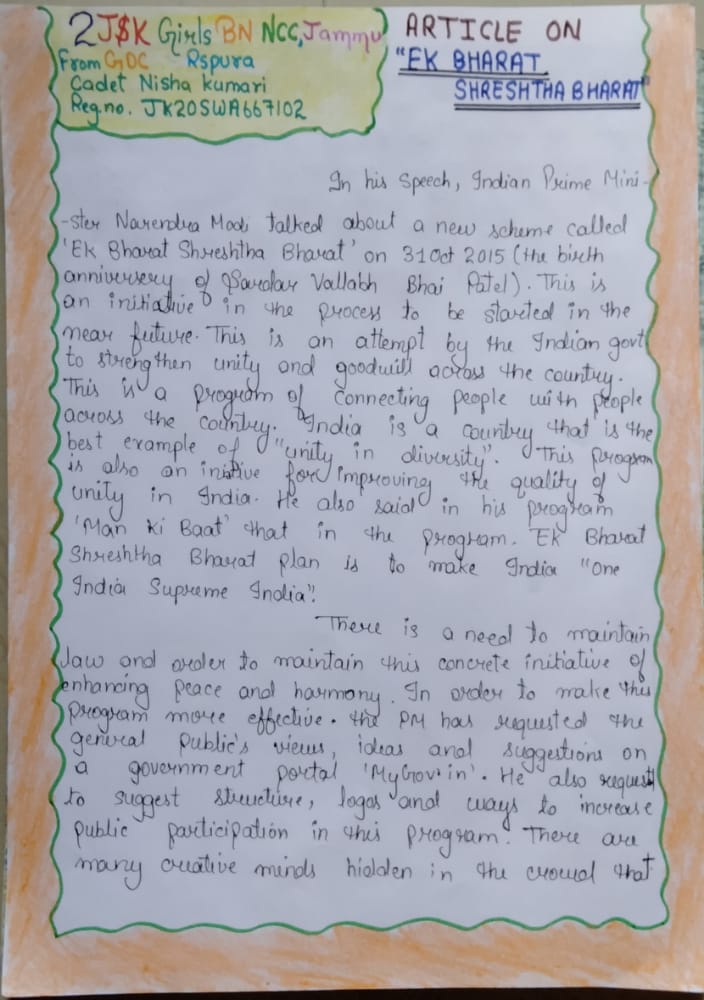 2 J&K Girls BN NCC, Jammu
From GDC Rspura
Cadet Nisha kumari
Reg.no. JK20SWA667102
ARTICLE ON
"EK BHARAT
SHRESHTHA BHARAT"
In his speech, Indian Prime Mini-
-ster Narendra Modi talked about a new scheme called
'Ek Bharat Shreshtha Bharat' on 31 Oct 2015 (the birth
anniversery of Sardar Vallabh Bhai Patel). This is
an initiative in the process to be started in the
near future. This is an attempt by the Indian govt
to strengthen unity and goodwill across the country.
This is a program of connecting people with people
across the country. India is a country that is the
best example of "unity in diversity". This program
is also an initive for improving the quality of
unity in India. He also said in his program
'Man Ki Baat' that in the program. Ek Bharat
Shreshtha Bharat plan is to make India "One
India Supreme India".
There is a need to maintain
law and order to maintain this concrete initiative of
enhancing peace and harmony. In order to make this
program more effective. the PM has requested the
general public's views, ideas and suggestions on
a government portal 'MyGov.in'. He also request
to suggest structure, logos and ways to increase
public participation in this program. There are
many creative minds hidden in the crowd that